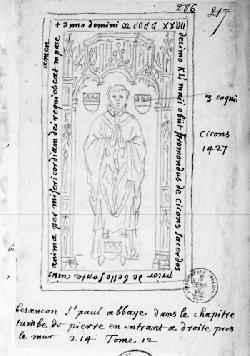 286 217
+ anno domini m cccc xxvii
decimo kli maii obiit fromondus de cicons sacerdos
prior de bellofonte cuius
anima per misericordiam dei requiescat in pace
amen
3 coqui
cicons
1427
besancon St paul abbaye dans le chapitre
tumbe de pierre en entrant a droite pres
le mur 214 Tome 12